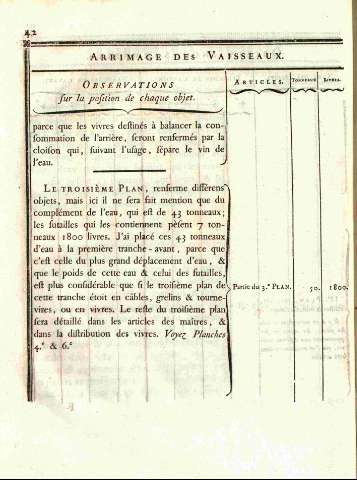 42
ARRIMAGE DES VAISSEAUX.
OBSERVATIONS
sur la position de chaque objet.
ARTICLES.
TONNEAUX
LIVRES.
parce que les vivres destinés à balancer la con-
sommation de l'arrière, seront renfermés par la
cloison qui, suivant l'usage, sépare le vin de
l'eau.
LE TROISIÈME PLAN, renferme différens
objets, mais ici il ne sera fait mention que du
complément de l'eau, qui est de 43 tonneaux;
les futailles qui les contiennent pèsent 7 ton-
neaux 1800 livres. J'ai placé ces 43 tonneaux
d'eau à la première tranche-avant, parce que
c'est celle du plus grand déplacement d'eau, &
que le poids de cette eau & celui des futailles,
est plus considérable que si le troisième plan de
cette tranche étoit en câbles, grelins & tourne-
vires, ou en vivres. Le reste du troisième plan
sera détaillé dans les articles des maîtres, &
dans la distribution des vivres. Voyez Planches
4.e & 6.e
Partie du 3.e PLAN.
50.
1800.